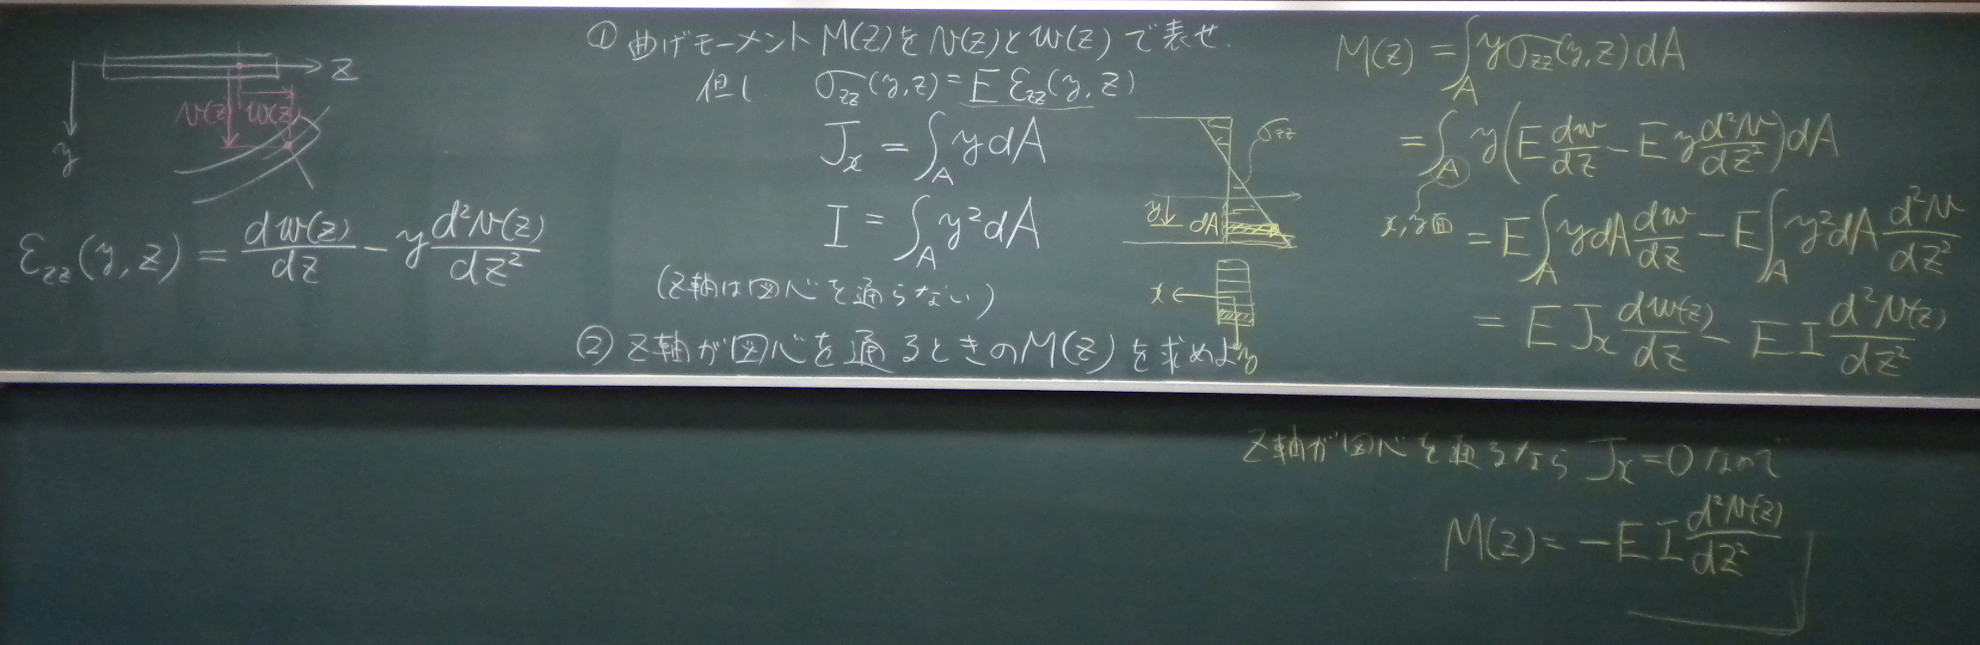 z
y
v(z) w(z)
ε_zz(y, z) = dw(z)/dz − y d²v(z)/dz²
① 曲げモーメント M(z)を v(z)と w(z) で表せ.
但し σ_zz(y,z) = E ε_zz(y, z)
J_x = ∫_A y dA
I = ∫_A y² dA
(z軸は図心を通らない)
② z軸が図心を通るときのM(z)を求めよ
σ_zz
y dA
x
y
M(z) = ∫_A y σ_zz(y,z) dA
= ∫_A y(E dw/dz − E y d²v/dz²) dA
x,y面
= E ∫_A y dA dw/dz − E ∫_A y² dA d²v/dz²
= E J_x dw(z)/dz − E I d²v(z)/dz²
z軸が図心を通るなら J_x = 0 なので
M(z) = − E I d²v(z)/dz²